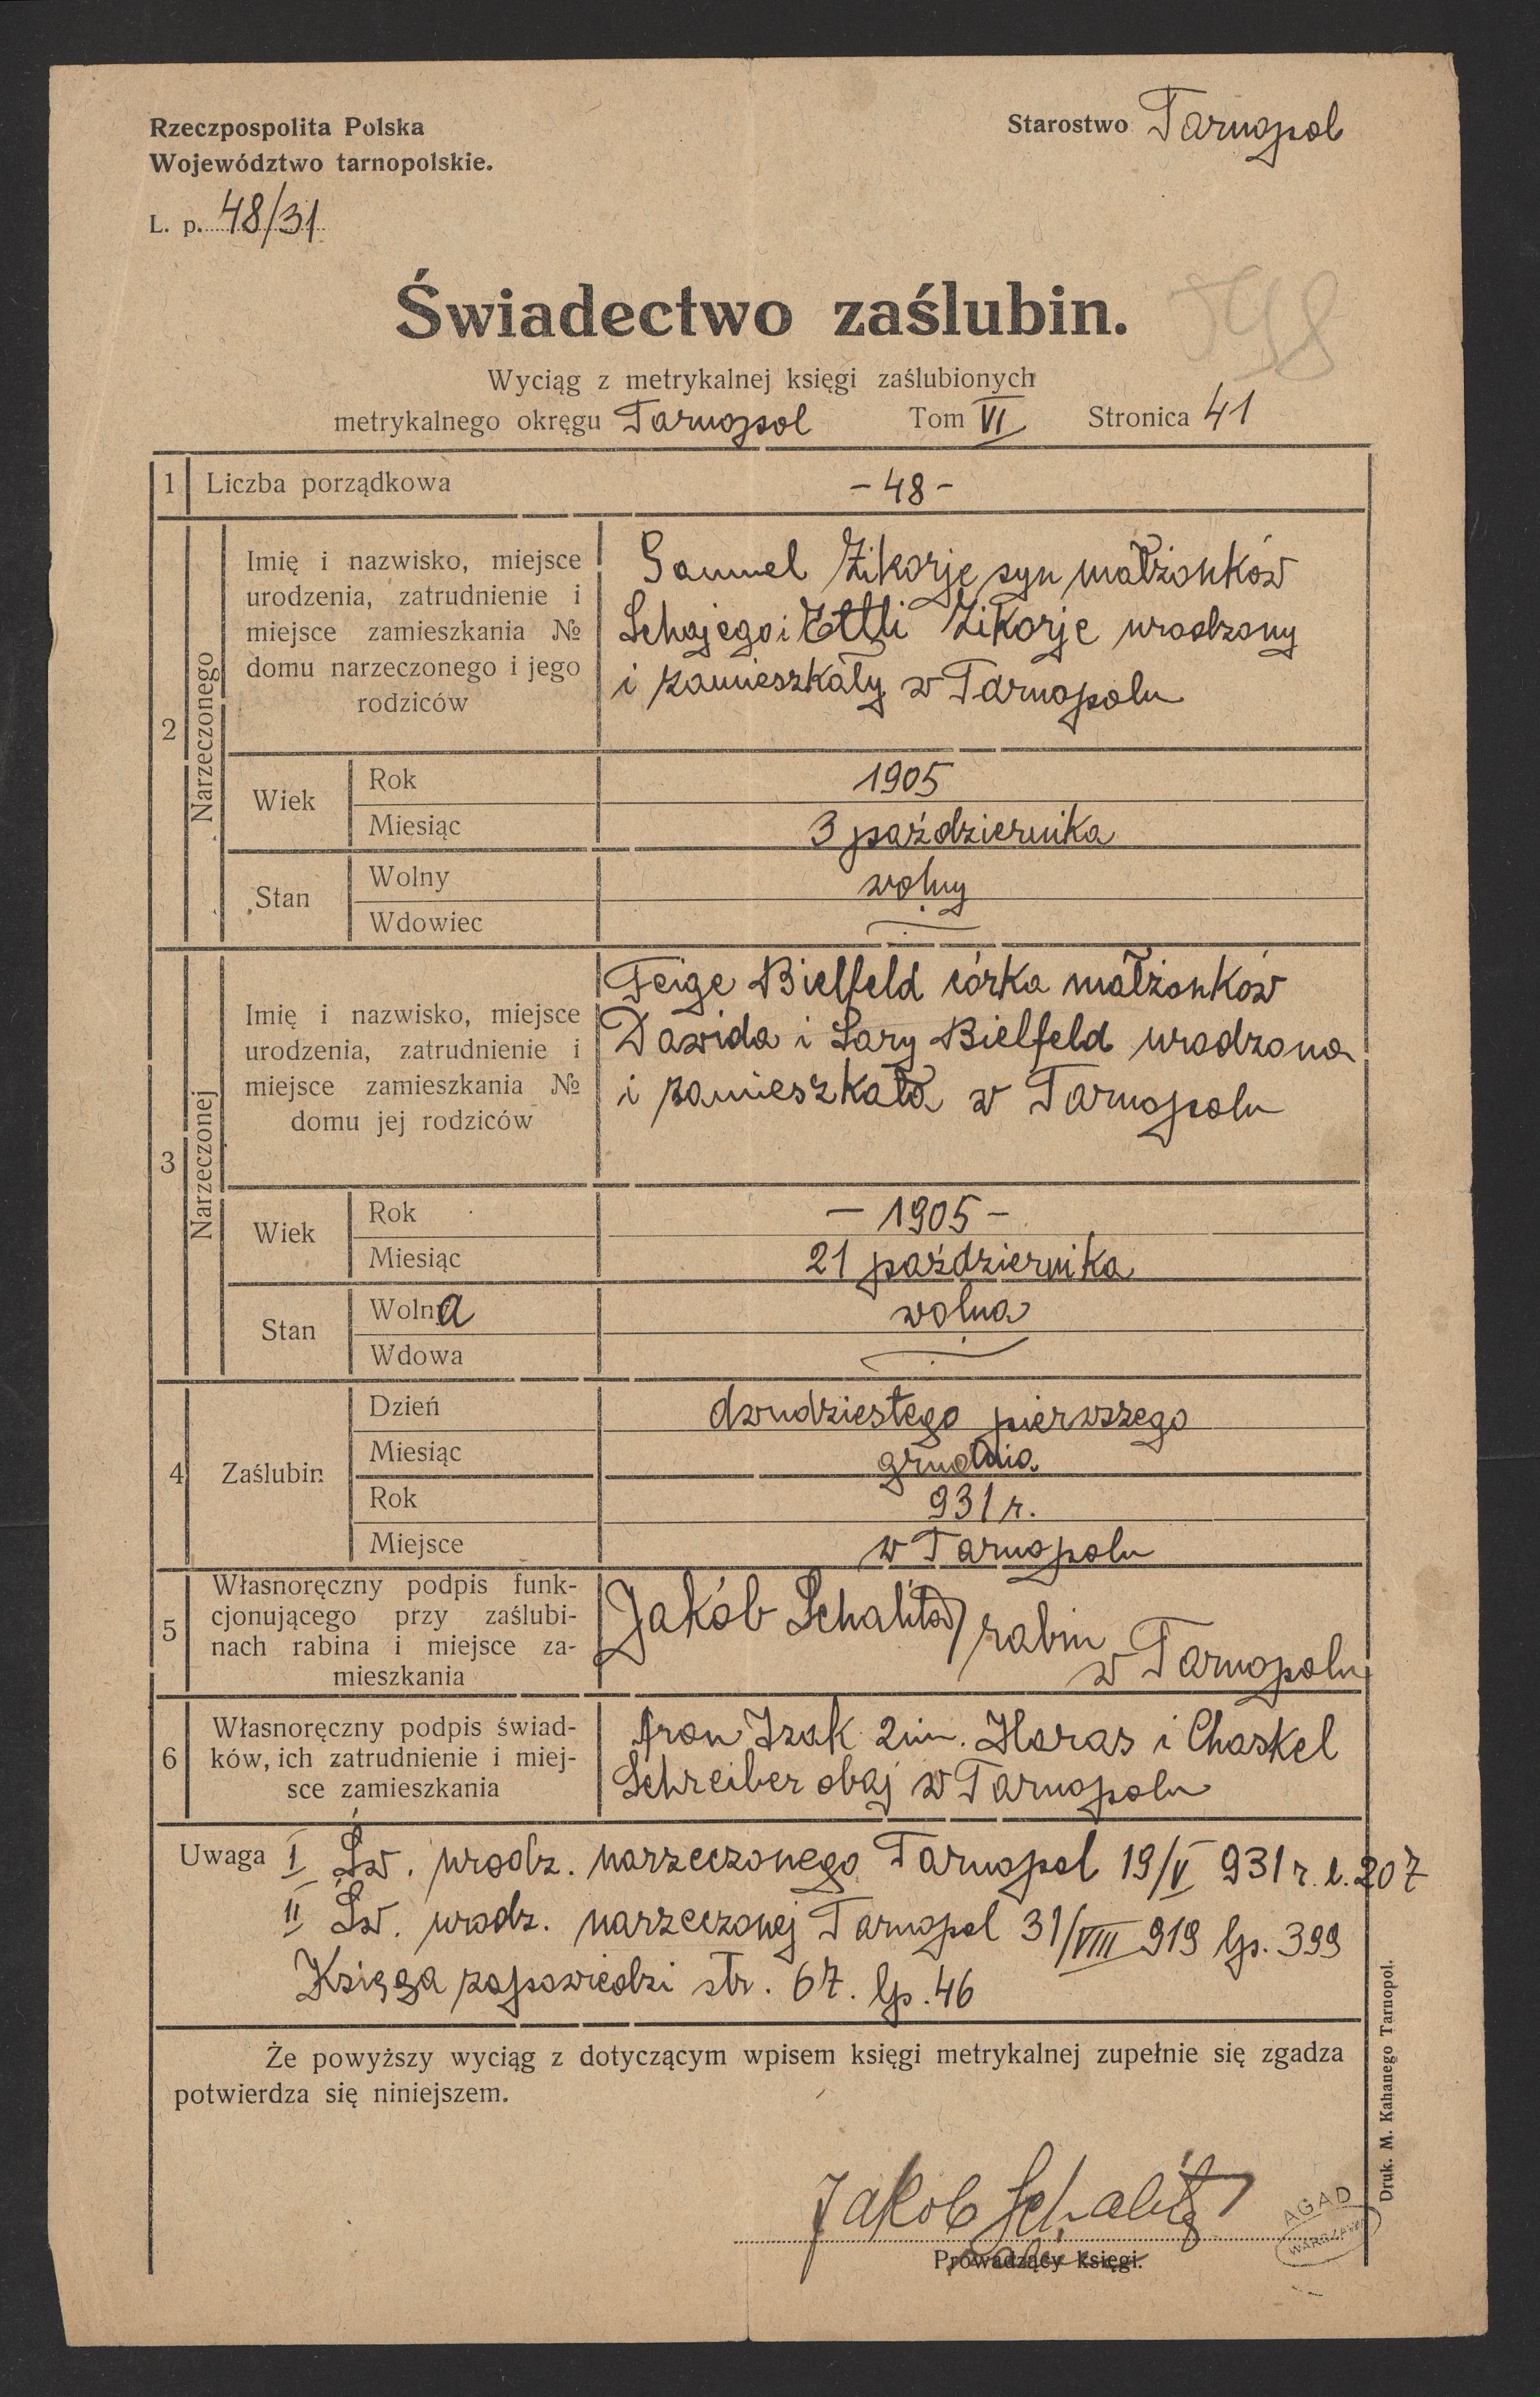 Rzeczpospolita Polska
Województwo tarnopolskie.
Starostwo Tarnopol
L. p. 48/31
Świadectwo zaślubin.
Wyciąg z metrykalnej księgi zaślubionych
metrykalnego okręgu Tarnopol Tom VI Stronica 41
1 Liczba porządkowa - 48 -
2 Narzeczonego
Imię i nazwisko, miejsce
urodzenia, zatrudnienie i
miejsce zamieszkania №
domu narzeczonego i jego
rodziców
Samuel Zikorje syn małżonków
Schajego i Ettli Zikorje urodzony
i zamieszkały w Tarnopolu
Wiek Rok 1905
Miesiąc 3 października
Stan Wolny wolny
Wdowiec
3 Narzeczonej
Imię i nazwisko, miejsce
urodzenia, zatrudnienie i
miejsce zamieszkania №
domu jej rodziców
Feige Bielfeld córka małżonków
Dawida i Sary Bielfeld urodzona
i zamieszkała w Tarnopolu
Wiek Rok - 1905 -
Miesiąc 21 października
Stan Wolna wolna
Wdowa
4 Zaślubin Dzień dwudziestego pierwszego
Miesiąc grudnia
Rok 931 r.
Miejsce w Tarnopolu
5 Własnoręczny podpis funk-
cjonującego przy zaślubi-
nach rabina i miejsce za-
mieszkania
Jakób rabin
w Tarnopolu
6 Własnoręczny podpis świad-
ków, ich zatrudnienie i miej-
sce zamieszkania
Aron Izak 2im. Haras i Chaskel
Schreiber obaj w Tarnopolu
Uwaga I Św. urodz. narzeczonego Tarnopol 19/V 931 r. l. 207
II Św. urodz. narzeczonej Tarnopol 31/VIII 919 lp. 399
Księga zapowiedzi str. 67. lp. 46
Że powyższy wyciąg z dotyczącym wpisem księgi metrykalnej zupełnie się zgadza
potwierdza się niniejszem.
Jakob
Prowadzący księgi.
AGAD
WARSZAWA
Druk. M. Kahanego Tarnopol.